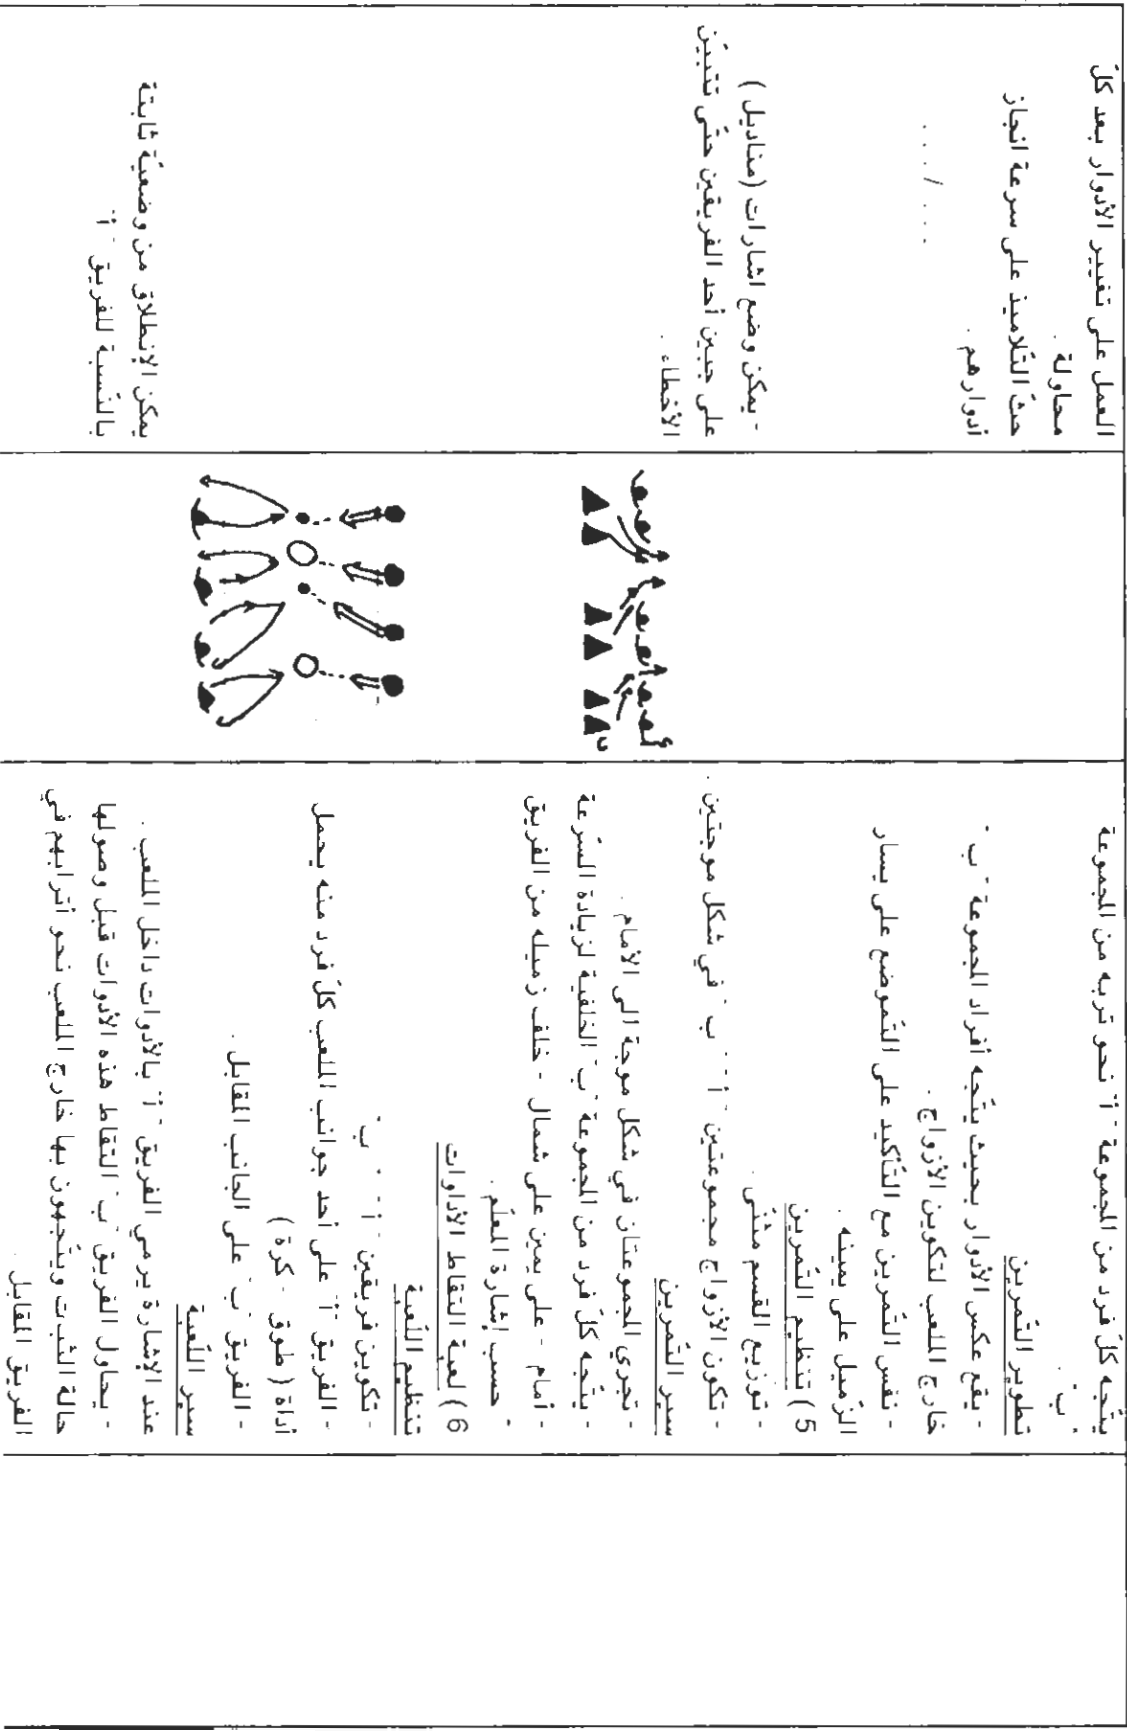 يتّجه كلّ فرد من المجموعة " أ " نحو تربه من المجموعة
" ب "
تطوير التّمرين
- يقع عكس الأدوار بحيث يتّجه أفراد المجموعة " ب "
خارج الملعب لتكوين الأزواج .
- نفس التّمرين مع التّأكيد على التّموضع على يسار
الزّميل على يمينه .
5 ) تنظيم التّمرين
- توزيع القسم مثنّى .
- تكون الأزواج مجموعتين " أ " " ب " في شكل موجتين .
سير التّمرين
- تجري المجموعتان في شكل موجة الى الأمام .
- يتّجه كلّ فرد من المجموعة " ب " الخلفية لزيادة السّرعة
- أمام - على يمين على شمال - خلف زميله من الفريق
- حسب إشارة المعلّم .
6 ) لعبة التقاط الأداوات
تنظيم اللّعبة
- تكوين فريقين " أ " " ب "
- الفريق " أ " على أحد جوانب الملعب كلّ فرد منه يحمل
أداة ( طوق - كرة )
- الفريق " ب " على الجانب المقابل .
سير اللّعبة
عند الإشارة يرمي الفريق " أ " بالأدوات داخل الملعب .
- يحاول الفريق " ب " التقاط هذه الأدوات قبل وصولها
حالة الثبات ويتّجهون بها خارج الملعب نحو أترابهم في
الفريق المقابل .
أ
ب
العمل على تغيير الأدوار بعد كلّ
محاولة .
حثّ التّلاميذ على سرعة انجاز
أدوارهم .
. . . / . . .
- يمكن وضع اشارات (مناديل )
على جبين أحد الفريقين حتّى تتبيّن
الأخطاء .
يمكن الإنطلاق من وضعيّة ثابتة
بالنّسبة للفريق " أ "